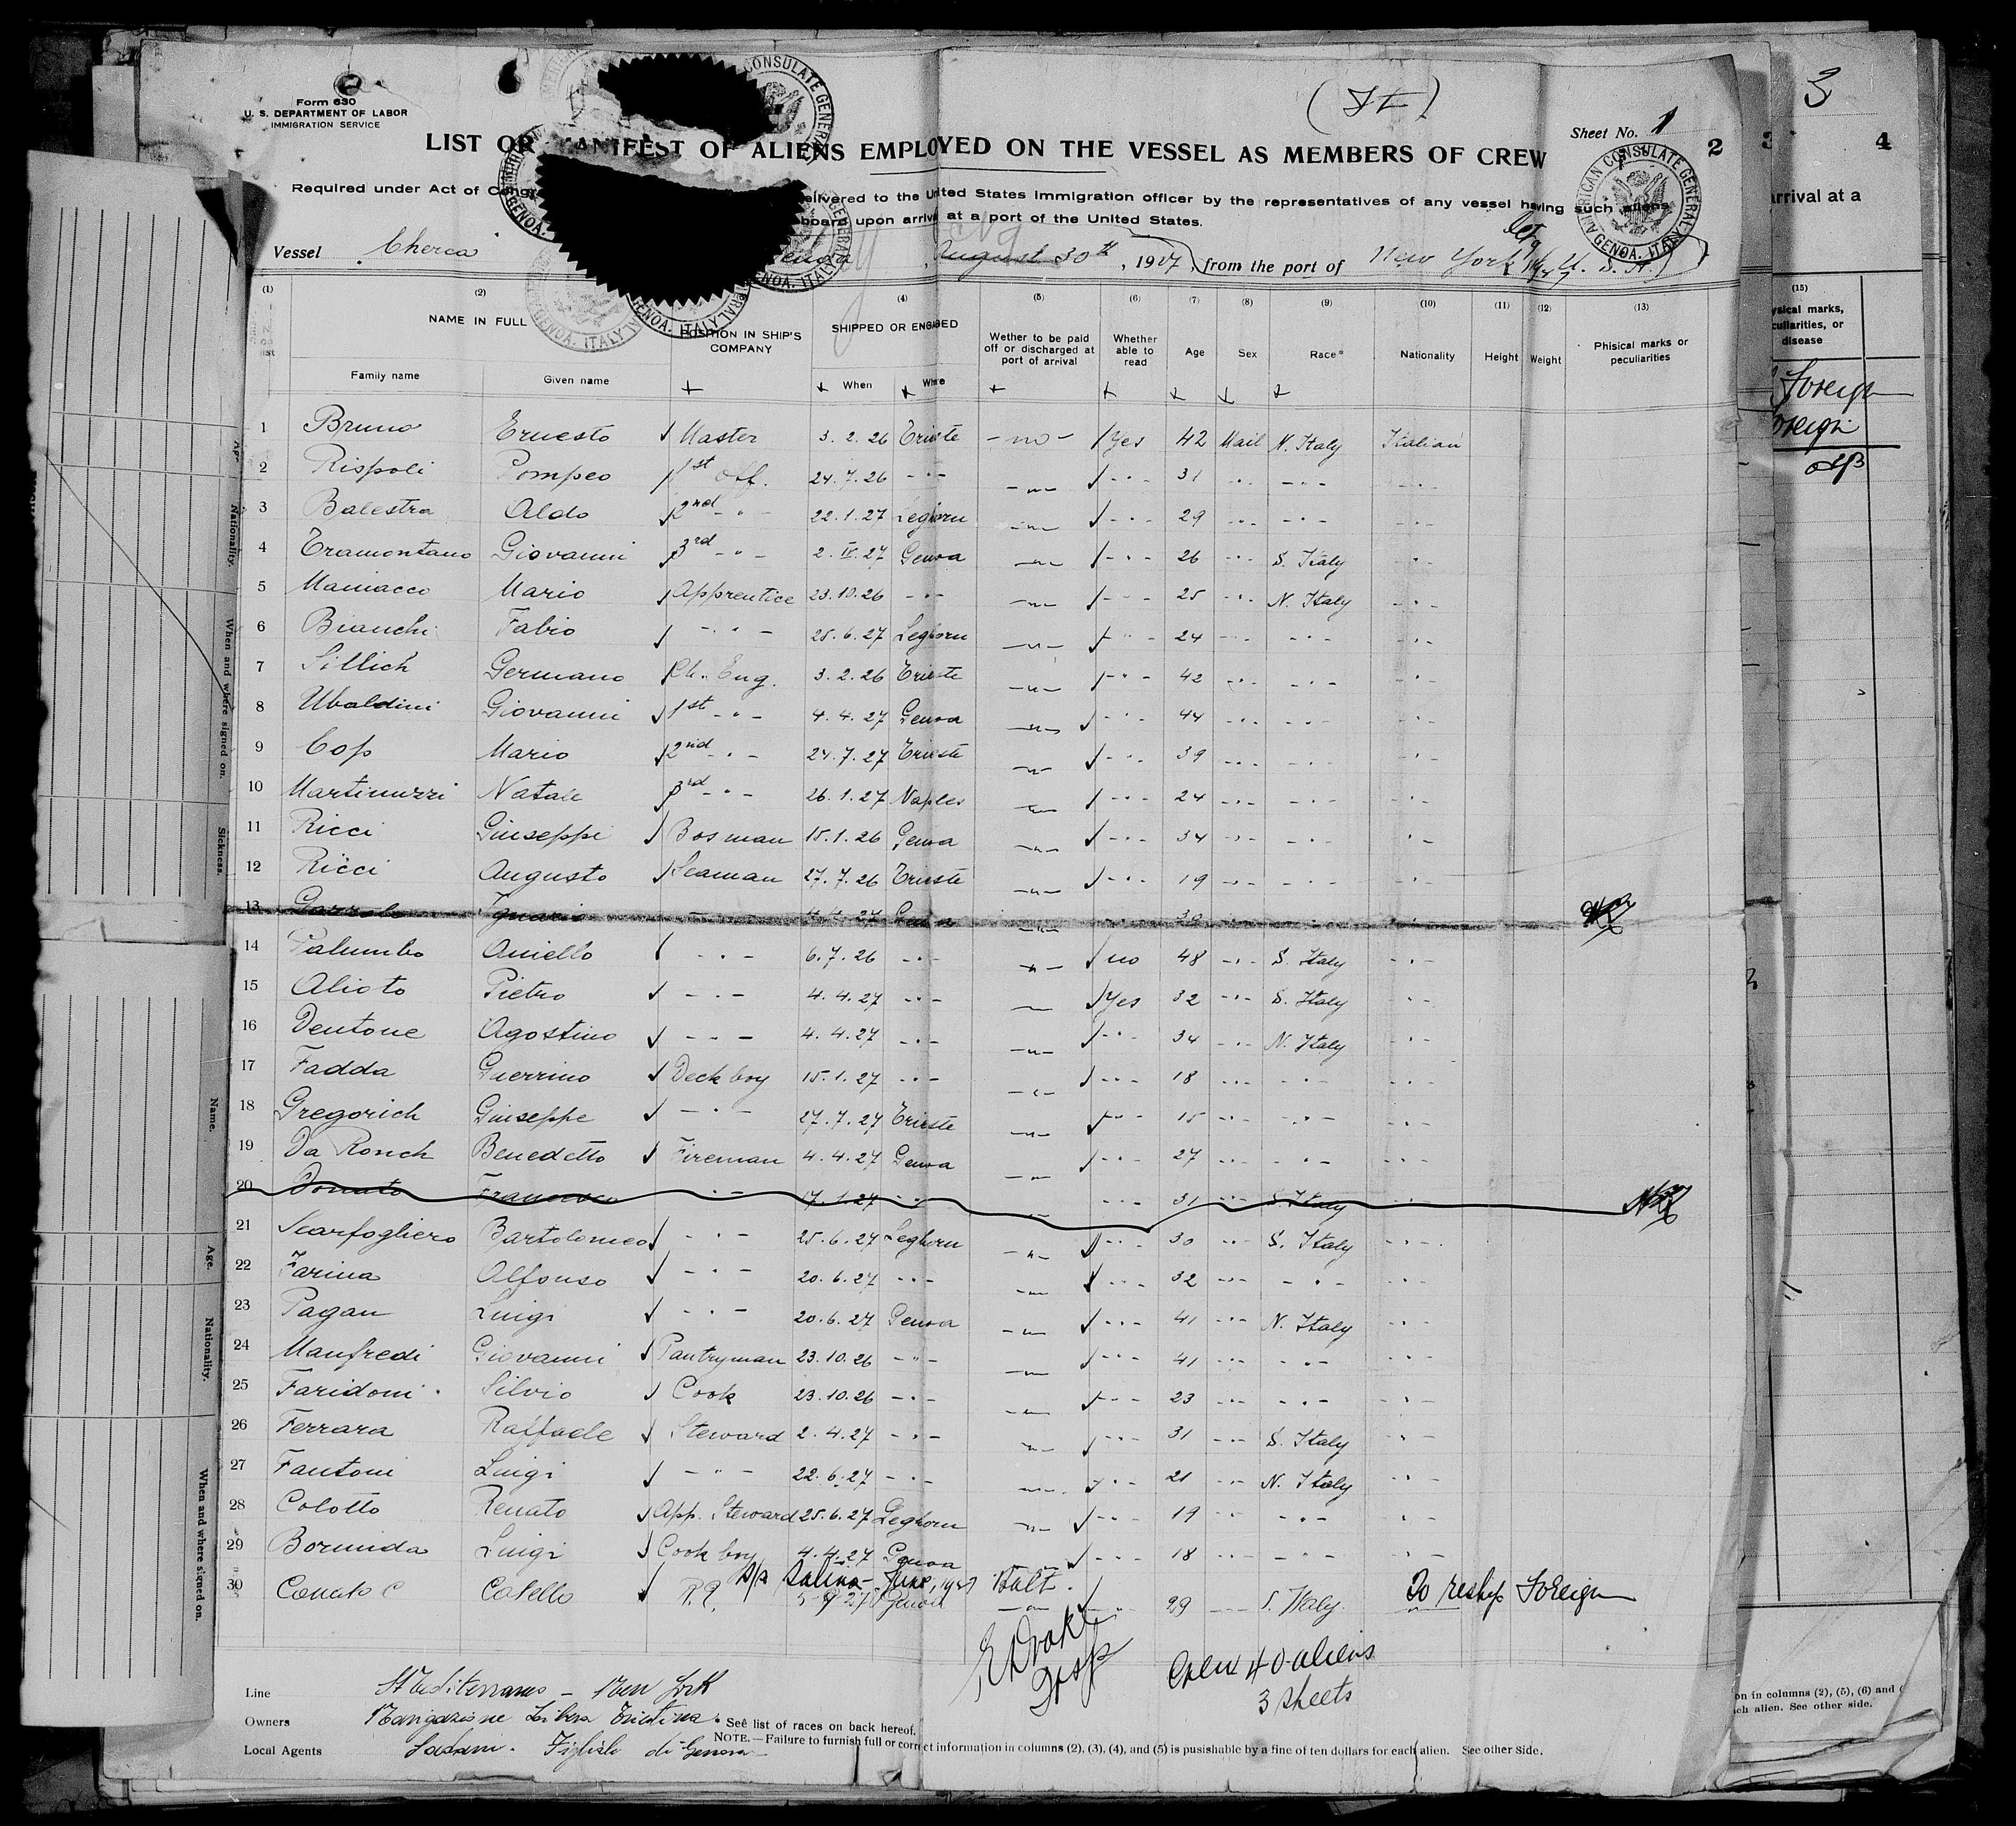 Form 630
U. S. DEPARTMENT OF LABOR
IMMIGRATION SERVICE
Sheet No. 1
2
3
4
LIST OR MANIFEST OF ALIENS EMPLOYED ON THE VESSEL AS MEMBERS OF CREW
Required under Act of Congr
elivered to the United States Immigration officer by the representatives of any vessel having such aliens
board upon arrival at a port of the United States.
Vessel Cherca Genoa, August 30th, 1927, from the port of New York U. S. A.
AMERICAN CONSULATE GENERAL GENOA, ITALY
(1) (2) (4) (5) (6) (7) (8) (9) (10) (11) (12) (13)
NAME IN FULL
Family name Given name
POSITION IN SHIP'S COMPANY
SHIPPED OR ENGAGED
When Where
Wether to be paid off or discharged at port of arrival
Whether able to read
Age Sex Race* Nationality Height Weight
Phisical marks or peculiarities
1 Bruno Ernesto Master 3. 2. 26 Trieste - no - Yes 42 Mail N. Italy Italian
2 Rispoli Pompeo 1st Off. 24. 7. 26 - " - - " - - " - 31 - " - - " - - " -
3 Balestra Aldo 2nd - " - 22. 1. 27 Leghorn - " - - " - 29 - " - - " - - " -
4 Tramontano Giovanni 3rd - " - 2. IV. 27 Genoa - " - - " - 26 - " - S. Italy - " -
5 Maniacco Mario Apprentice 23. 10. 26 - " - - " - - " - 25 - " - N. Italy - " -
6 Bianchi Fabio - " - 25. 6. 27 Leghorn - " - - " - 24 - " - - " - - " -
7 Sillich Germano Ch. Eng. 3. 2. 26 Trieste - " - - " - 42 - " - - " - - " -
8 Ubaldini Giovanni 1st - " - 4. 4. 27 Genoa - " - - " - 44 - " - - " - - " -
9 Cop Mario 2nd - " - 24. 7. 27 Trieste - " - - " - 39 - " - - " - - " -
10 Martinuzzi Natale 3rd - " - 26. 1. 27 Naples - " - - " - 24 - " - - " - - " -
11 Ricci Giuseppi Bosman 15. 1. 26 Genoa - " - - " - 34 - " - - " - - " -
12 Ricci Augusto Seaman 27. 7. 26 Trieste - " - - " - 19 - " - - " - - " -
13 Ignazio 4. 4. 27 Genoa - " -
14 Palumbo Aniello - " - 6. 7. 26 - " - - " - no 48 - " - S. Italy - " -
15 Alioto Pietro - " - 4. 4. 27 - " - - Yes 32 - " - S. Italy - " -
16 Dentone Agostino - " - 4. 4. 27 - " - - " - - " - 34 - " - N. Italy - " -
17 Fadda Guerrino Deck boy 15. 1. 27 - " - - " - - " - 18 - " - - " - - " -
18 Gregorich Giuseppe - " - 27. 7. 27 Trieste - " - - " - 15 - " - - " - - " -
19 Da Ronch Benedetto Fireman 4. 4. 27 Genoa - " - - " - 27 - " - - " - - " -
20 Donato Francesco - " - 17. 1. 27 - " - - - " - 31 - " - S. Italy - " -
21 Scarfogliero Bartolomeo - " - 25. 6. 27 Leghorn - " - - " - 30 - " - S. Italy - " -
22 Farina Alfonso - " - 20. 6. 27 - " - - " - - " - 32 - " - - " - - " -
23 Pagan Luigi - " - 20. 6. 27 Genoa - " - - " - 41 - " - N. Italy - " -
24 Manfredi Giovanni Pantryman 23. 10. 26 - " - - " - - " - 41 - " - - " - - " -
25 Faridoni Silvio Cook 23. 10. 26 - " - - " - - " - 23 - " - - " - - " -
26 Ferrara Raffaele Steward 2. 4. 27 - " - - " - - " - 31 - " - S. Italy - " -
27 Fantoni Luigi - " - 22. 6. 27 - " - - " - - " - 21 - " - N. Italy - " -
28 Colotto Renato App. Steward 25. 6. 27 Leghorn - " - - " - 19 - " - - " - - " -
29 Bormida Luigi Cook boy 4. 4. 27 Genoa - " - - " - 18 - " - - " - - " -
S/s Salina - June, 1927 Balt.
30 Catello Genoa - " - - " - 29 - " - S. Italy. To reship Foreign
40 aliens
3 sheets
Line Mediterraneo - New York
Owners Navigazione Libera Triestina
Local Agents Figlio di Genova
* See list of races on back hereof.
NOTE.—Failure to furnish full or correct information in columns (2), (3), (4), and (5) is pusishable by a fine of ten dollars for each alien. See other side.
3
arrival at a
(15)
ysical marks,
culiarities, or
disease
Foreign
oreign
on in columns (2), (5), (6) and (
ch alien. See other side.
Nationality.
When and where signed on.
Sickness.
Name.
Age.
Nationality.
When and where signed on.